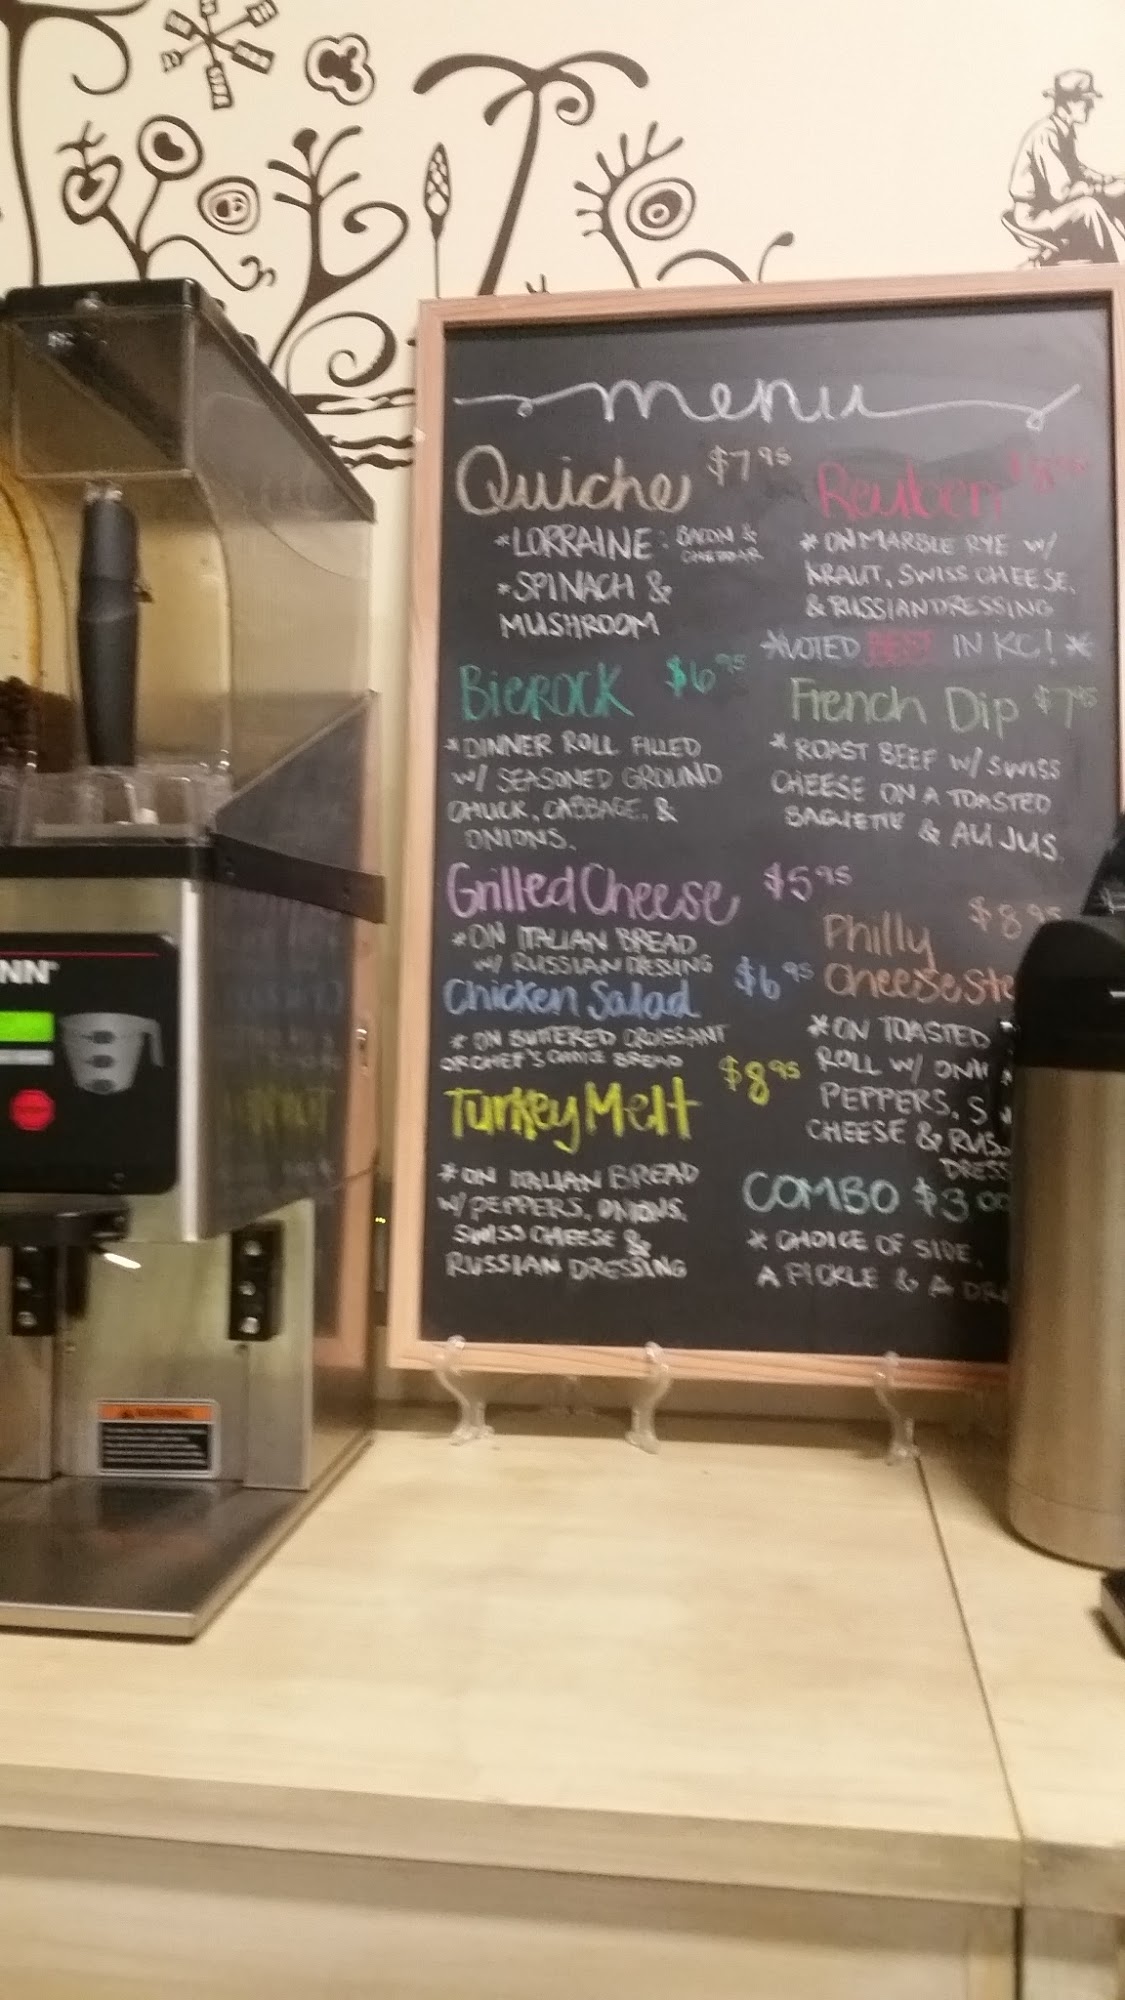 menu
Quiche $7.95
*LORRAINE: BACON &
CHEDDAR
*SPINACH &
MUSHROOM
Bierock $6.95
*DINNER ROLL FILLED
W/ SEASONED GROUND
CHUCK, CABBAGE, &
ONIONS.
Grilled Cheese $5.95
*ON ITALIAN BREAD
W/ RUSSIAN DRESSING
Chicken Salad $6.95
*ON BUTTERED CROISSANT
OR CHEF'S CHOICE BREAD
Turkey Melt $8.95
*ON ITALIAN BREAD
W/ PEPPERS, ONIONS,
SWISS CHEESE &
RUSSIAN DRESSING
Reuben $8.95
*ON MARBLE RYE W/
KRAUT, SWISS CHEESE,
& RUSSIAN DRESSING
*VOTED BEST IN KC! *
French Dip $7.95
*ROAST BEEF W/ SWISS
CHEESE ON A TOASTED
BAGUETTE & AU JUS.
Philly $8.95
Cheese Ste
*ON TOASTED
ROLL W/ ONI
PEPPERS, S
CHEESE & RUSS
DRESS
COMBO $3.00
*CHOICE OF SIDE,
A PICKLE & A DRI
NN
WARNING